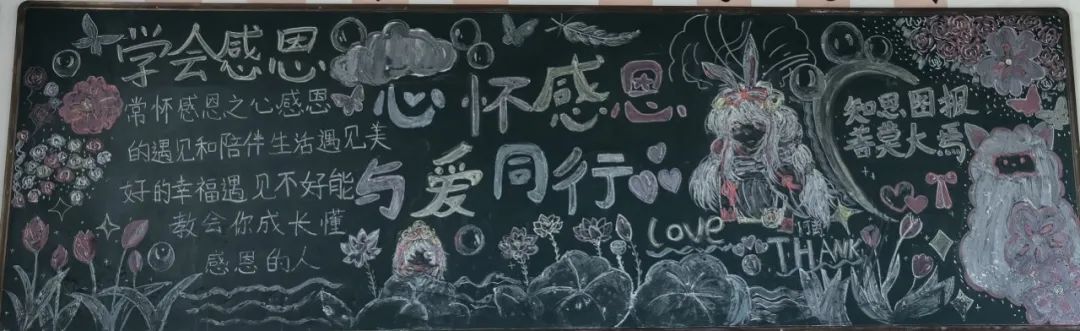 学会感恩
常怀感恩之心感恩
的遇见和陪伴生活遇见美
好的幸福遇见不好能
教会你成长懂
感恩的人
心怀感恩
与爱同行
Love
THANK
知恩图报
善莫大焉